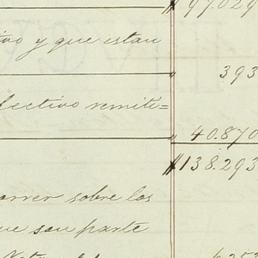 97.029
ivo y que estan
393
fectivo remiti=
40.870
$138.293
correr sobre los
ue son parte